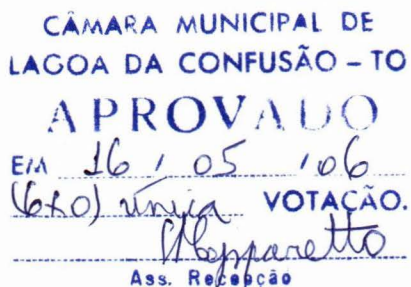 CÂMARA MUNICIPAL DE
LAGOA DA CONFUSÃO – TO
APROVADO
EM 16 / 05 / 06
(6x0) única VOTAÇÃO.
Ass. Recepção